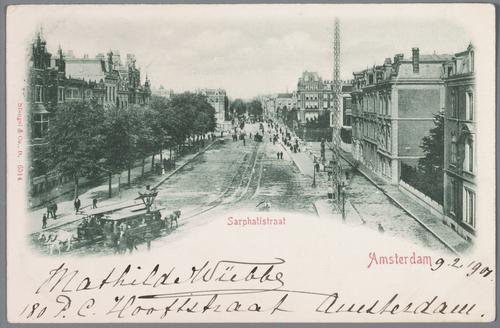 Stengel & Co., D. 6514
Sarphatistraat
Amsterdam 9.2.1901.
Mathilde Wübbe
180 P.C. Hooftstraat Amsterdam.